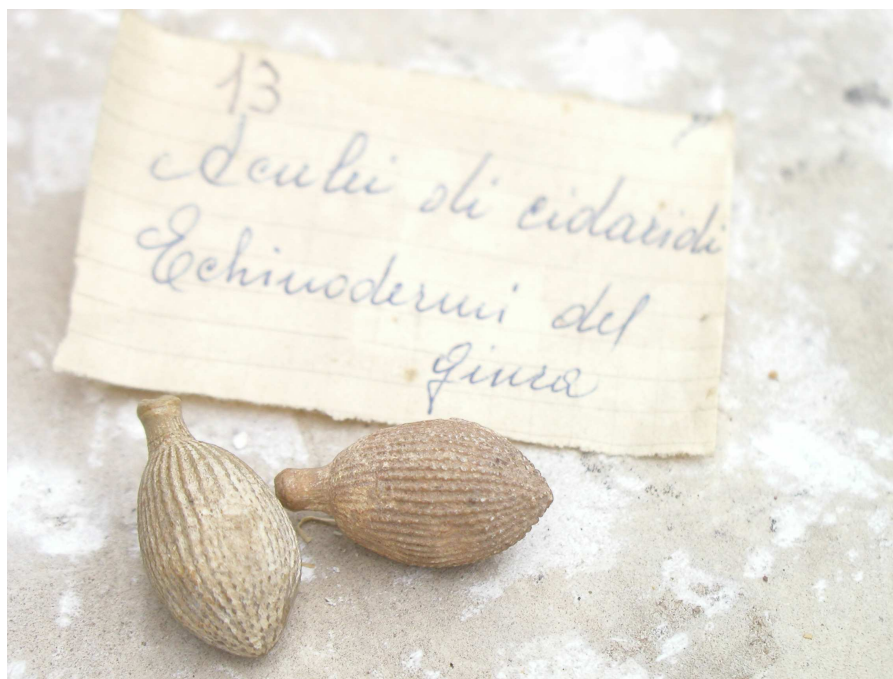 13
Aculei di cidaridi
Echinodermi del
Giura